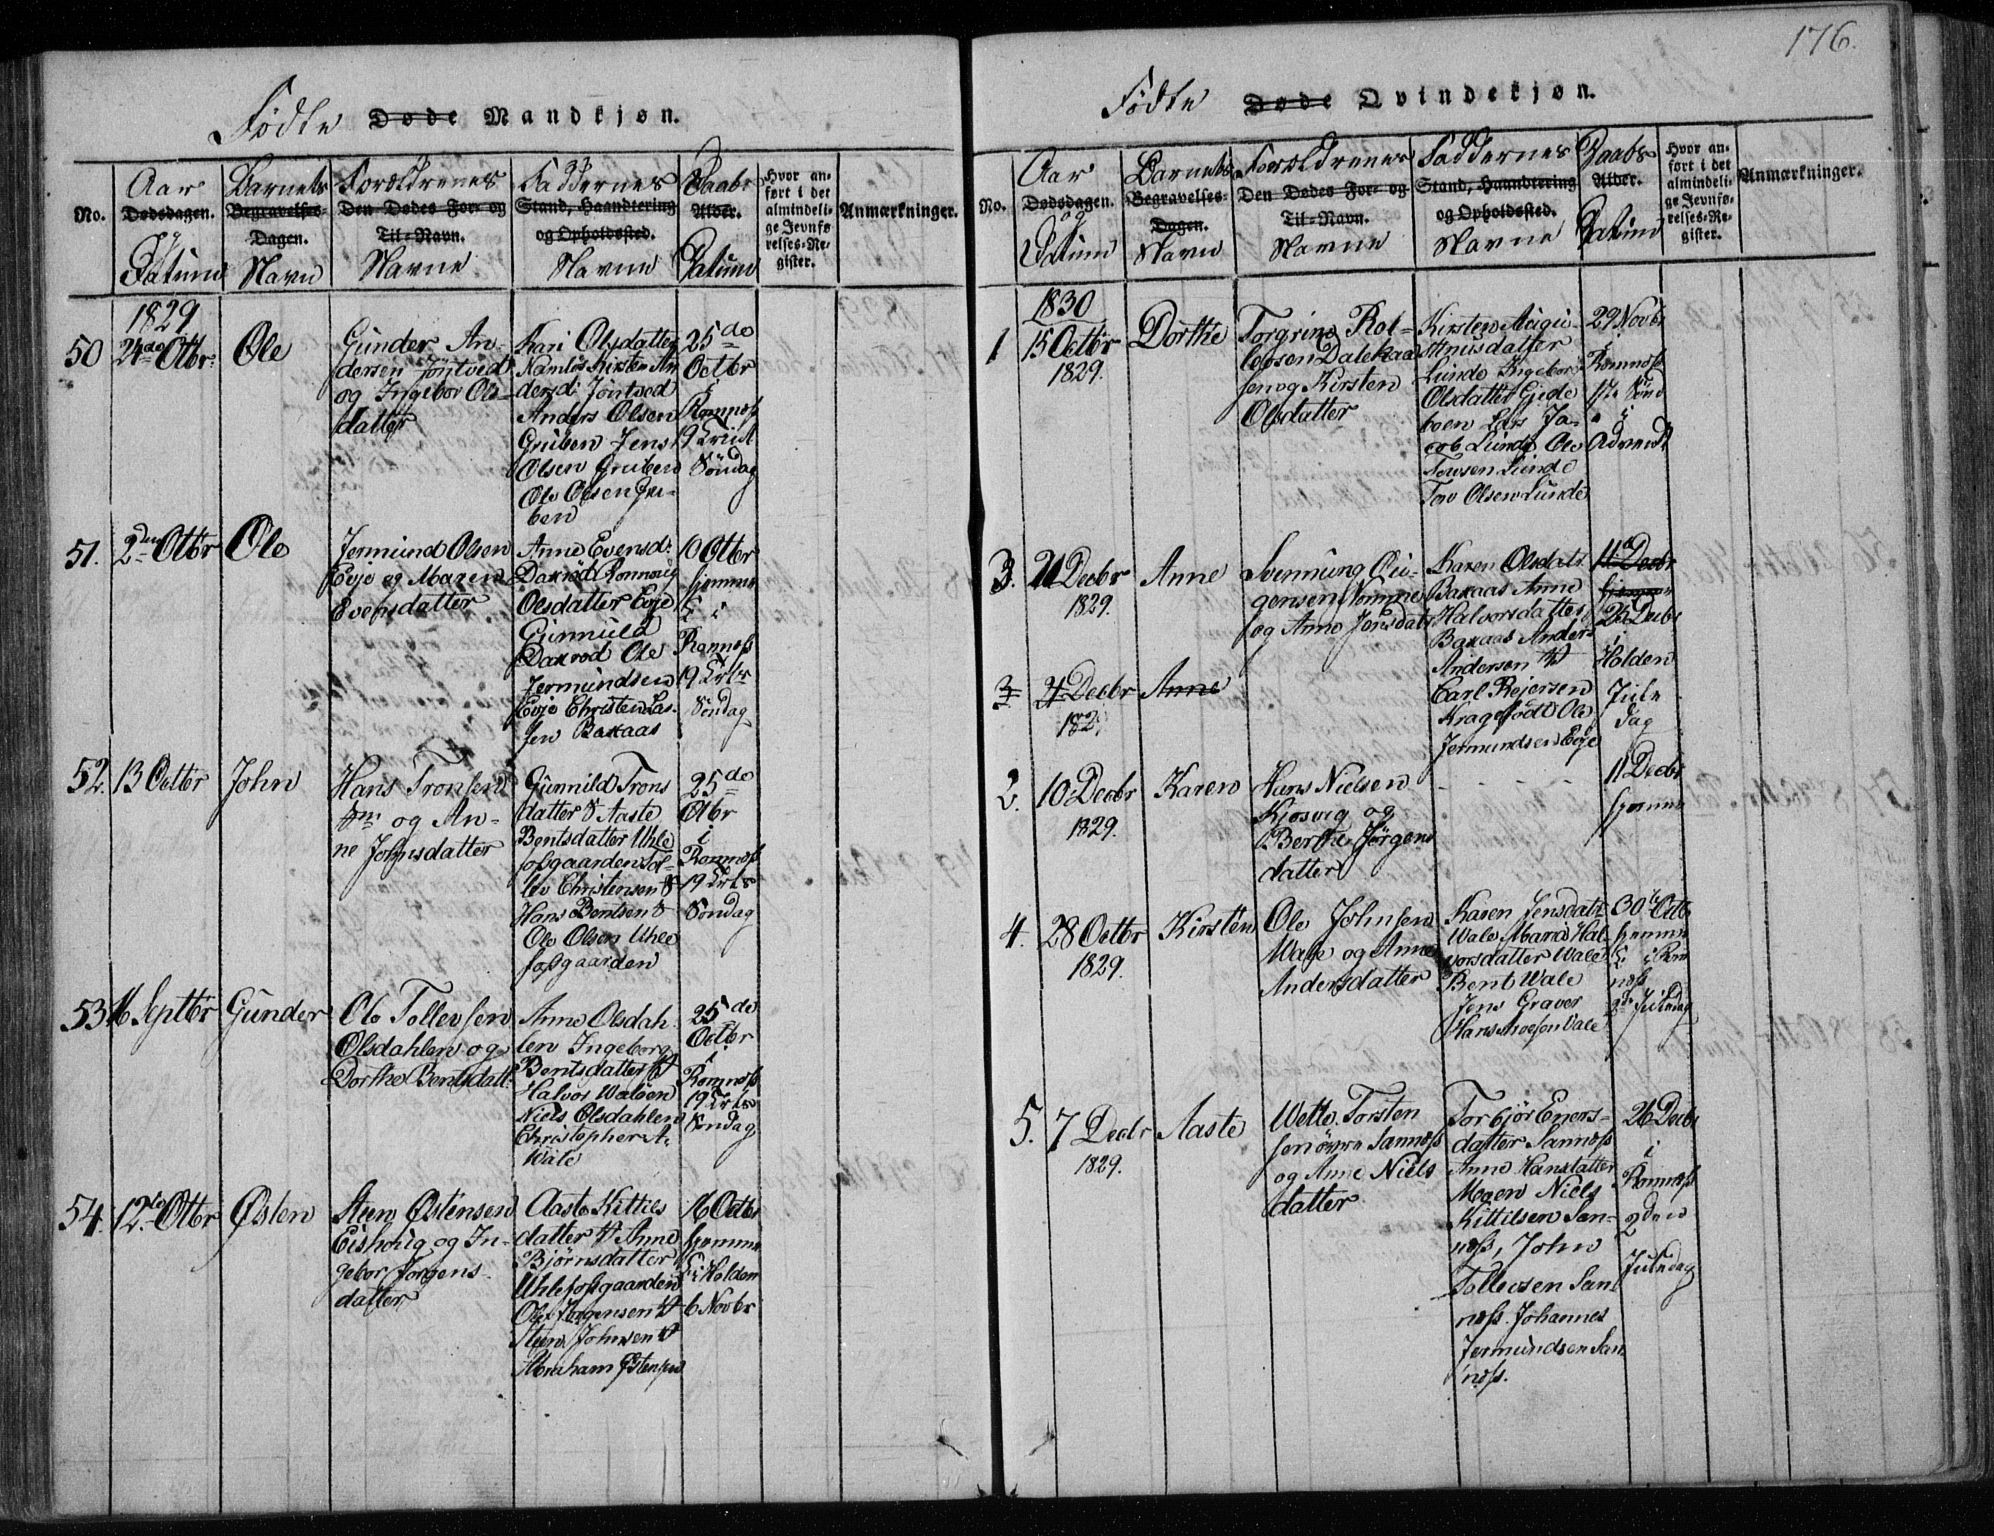 176.
Fødte Døde Mandkjøn.
No.
Aar
Dødsdagen.
og
Datum
Barnets
Begravelses-
Dagen.
Navn
Forældrenes
Den Dødes For- og
Til-Navn.
Navne
Faddernes
Stand, Haandtering
og Opholdssted.
Navne
Daabs
Alder.
Datum
Hvor an-
ført i det
almindeli-
ge Jevnfø-
relses-Re-
gister.
Anmærkninger.
1829
50
24de Otbr.
Ole
Gunder An-
dersen Jøntvedt
og Ingebor Ols-
datter
Kari Olsdatter
Namløs Kirsten An
dersd: Jøntved
Anders Olsen
Gruben Jens
Olsen Gruben
Ole Olsen Gru-
ben
25de
Octbr
i
Romnæs
19 Trint
Søndag
51.
2den Otbr
Ole
Jermund Olsen
Evje og Maren
Evensdatter
Anne Evensd:
Daxrød Ronnoug
Olsdatter Evje
Gunnuld
Daxrod Ole
Jermundsen
Evje Christen Las-
sen Baxaas
10 Otbr
hjemme
i
Romnæs
19 Trts
Søndag
52.
13 Octbr
John
Hans Tronsen
og An-
ne Johnsdatter
Gunnild Trons
datter & Aaste
Bentsdatter Uhle
fosgaarden Tol-
lev Christensen &
Hans Bentsen &
Ole Olsen Uhle
fosgaarden
25de
Otbr
i
Romnæs
19 Trts
Søndag
53
16 Septbr
Gunder
Ole Tollevsen
Olsdahlen og
Dorthe Bentsdatt:
Anne Olsdah-
len Ingeborg
Bentsdatter &
Halvor Waløen
Niels Olsdahlen
Christopher A.
Wale
25de
Octbr
i
Romnæs
19 Trts
Søndag
54.
12te Otbr
Østen
Steen Østensen
Eishoug og In-
gebor Jørgens-
datter
Aaste Kittils
datter & Anne
Bjørnsdatter
Uhlefosgaarden
Ole Jørgensen &
Steen Johnsen &
Abraham Østensen
16 Octbr
hjemme
i Holden
6 Novbr
Fødte Døde Qvindekjøn.
No.
Aar
Dødsdagen.
og
Datum
Barnets
Begravelses-
Dagen.
Navn
Forældrenes
Den Dødes For- og
Til-Navn.
Navne
Faddernes
Stand, Haandtering
og Opholdssted.
Navne
Daabs
Alder.
Datum
Hvor an-
ført i det
almindeli-
ge Jevnfø-
relses-Re-
gister.
Anmærkninger.
1830
1
15 Octbr
1829.
Dorthe
Torgrine Rol-
lefsen Dalekaa
sen og Kirsten
Olsdatter
Kirsten
datter
Lunde Ingebor
Olsdatter Gjede
boen Lars Ja-
cob Lunde Ole
Tovsen Lunde
Tov Olsen Lunde
29 Novbr
i
Romnæs
1ste Sønd
i
Advendt
3.
21 Decbr
1829.
Anne
Svennung
gensen Namme
og Anne Jensdatt
Karen Olsdatt:
Baxaas Anne
Halvorsdatter
Baxaas Anders
Andersen &
Carl Rejersen
Kragefødt Ole
Jermundsen Evje
11 Decbr
hjemme
25 Decbr
i
Holden
Jule
dag
3
21 Decbr
182
Anne
2.
10 Decbr
1829.
Karen
Hans Nielsen
Kjosvig og
Berthe Jørgens
datter
11 Decbr
hjemme
4.
28 Octbr
1829.
Kirsten
Ole Johnsen
Wale og Anne
Andersdatter
Karen Jensdatt
Wale Maria Hal-
vorsdatter Wale
Bent Wale
Jens Graver
Hans Moesen Vale
30te Octb
hjemme
i Rom
næs
2de Juledag
5.
7 Decbr
1829.
Aaste
Wetle Torsten
sen øvre Sannæs
og Anne Niels
datter
Torbjør Eners-
datter Sannæs
Anne Hansdatter
Moen Niels
Kittilsen San-
næs, John
Tollevsen San
næs. Johannes
Jermundsen San
næs.
26 Decbr
i
Romnæs
2den
Juledag